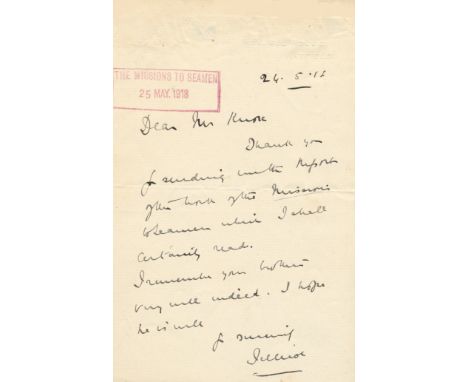 THE MISSIONS TO SEAMEN
25 MAY. 1918
24. 5. 18
Dear Mr Knox
Thank you
for sending me the Report
of the work of the Missions
to Seamen which I shall
certainly read.
I remember your brother
very well indeed. I hope
he is well
Yr sincerely
Jellicoe